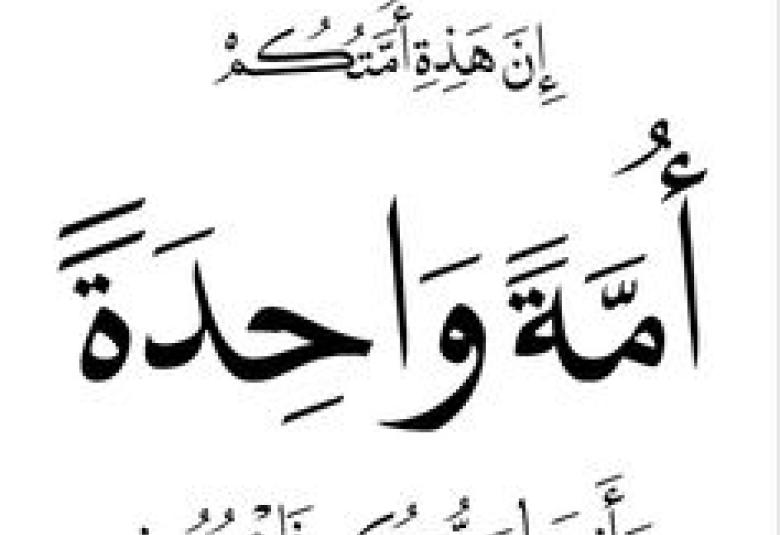 إِنَ هَذِةِ أُمَّتُكُمْ
أُمَّةً وَاحِدَةً